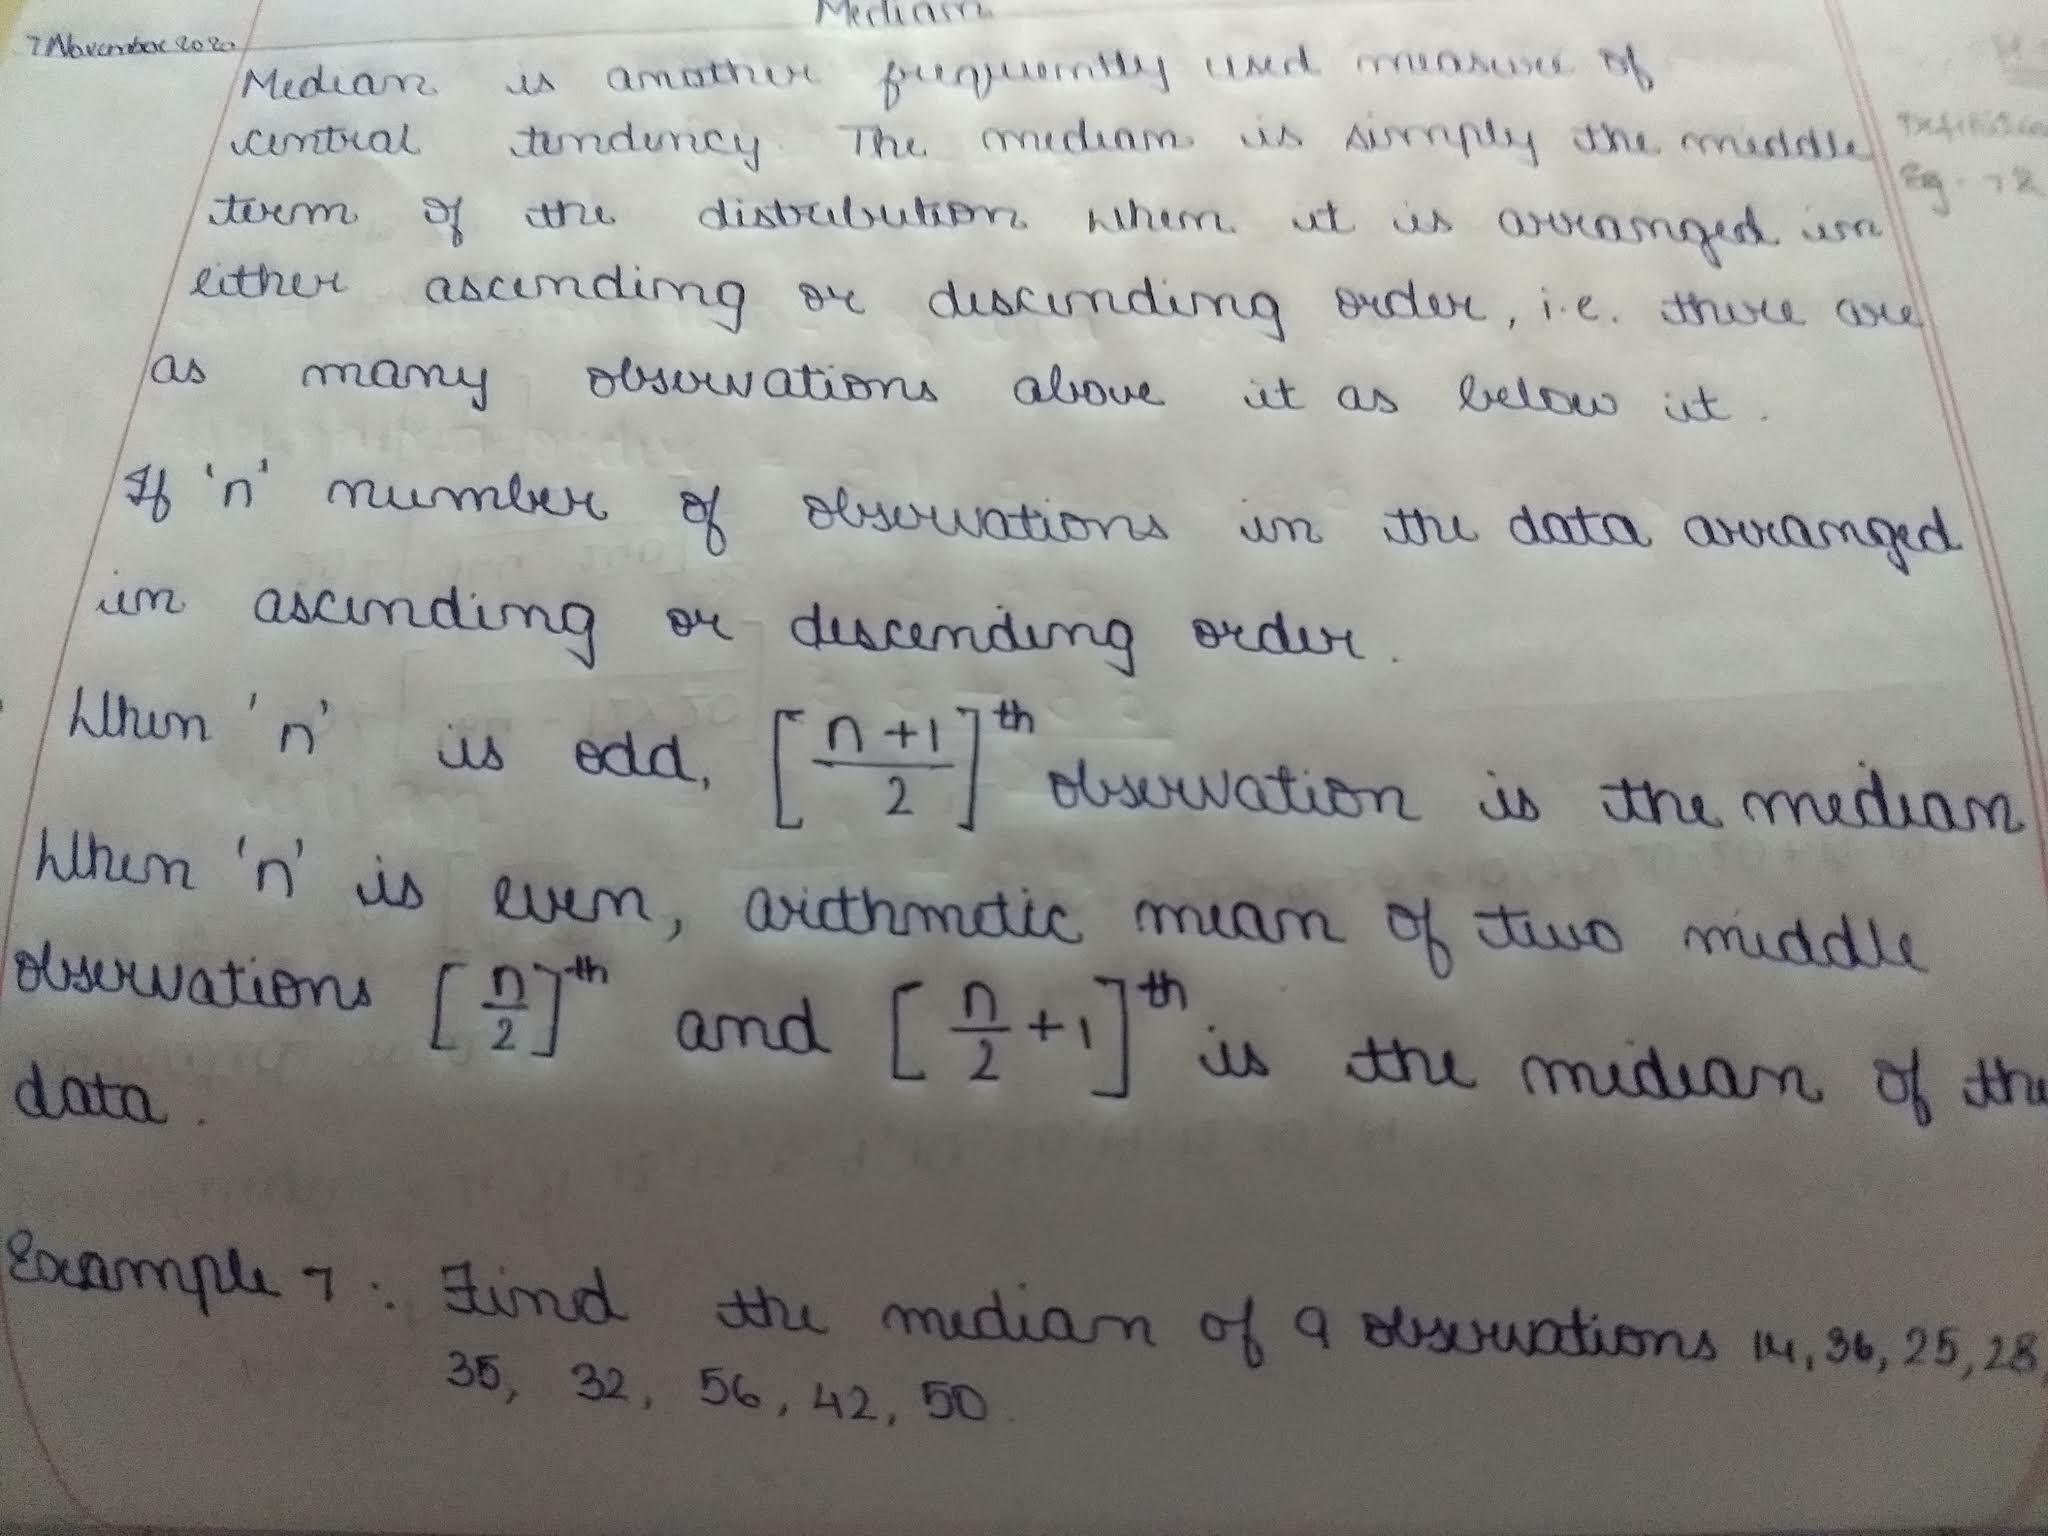 Median
7 November 2020
Median is another frequently used measure of
central tendency. The median is simply the middle
term of the distribution when it is arranged in
either ascending or descending order, i.e. there are
as many observations above it as below it.
If 'n' number of observations in the data arranged
in ascending or descending order.
When 'n' is odd, [n+1/2]th observation is the median
When 'n' is even, arithmetic mean of two middle
observations [n/2]th and [n/2+1]th is the median of the
data.
Example 7: Find the median of 9 observations 14, 36, 25, 28,
35, 32, 56, 42, 50.